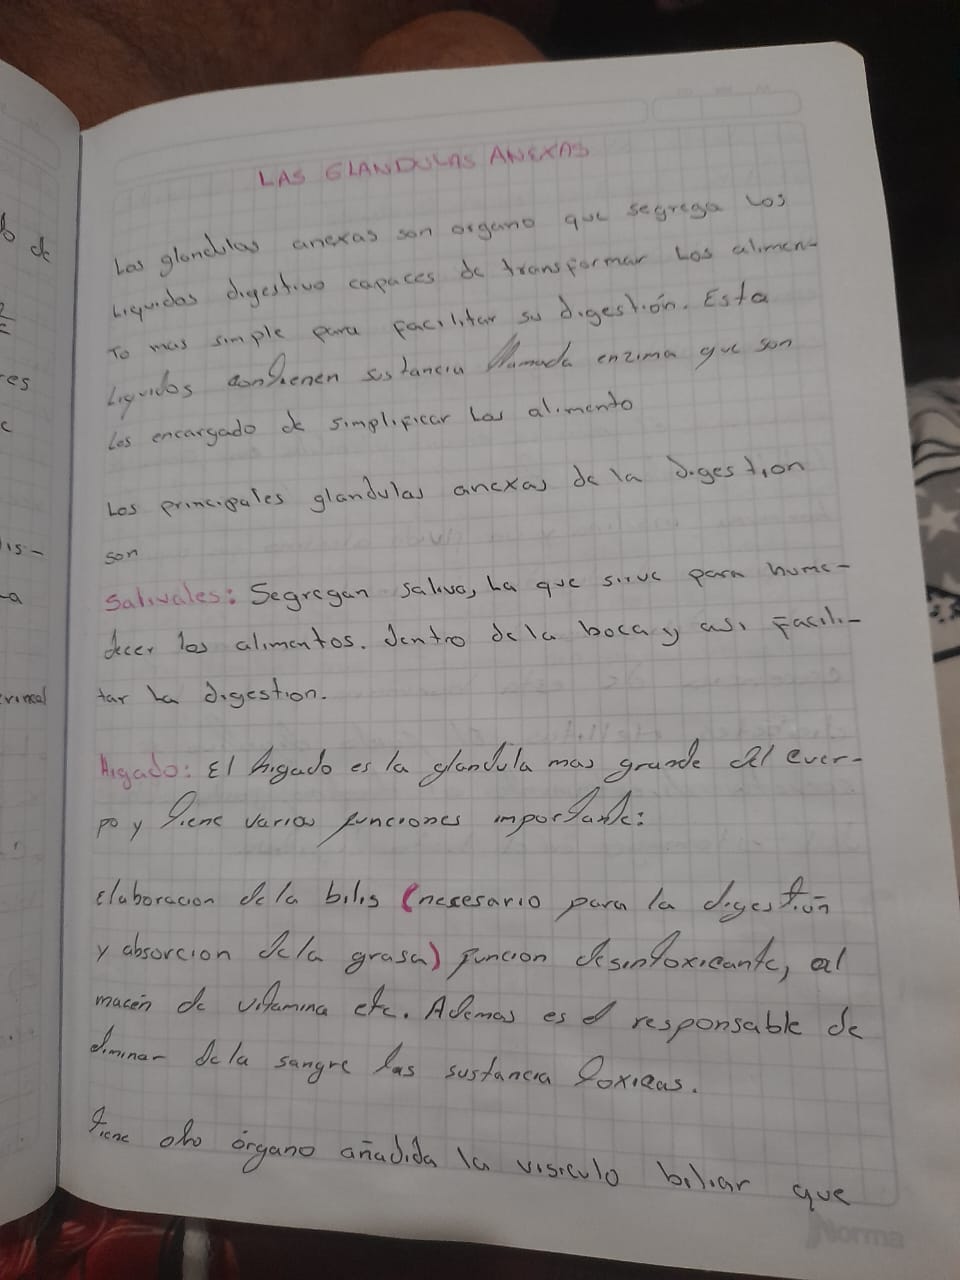 LAS GLANDULAS ANEXAS
Las glandulas anexas son organo que segrega Los
Liquidos digestivo capaces de transformar Los alimen-
To mas simple para facilitar su digestión. Esta
Liquidos contienen sustancia llamada enzima que son
Los encargado de simplificar Los alimento
Los principales glandulas anexas de la digestion
son
Salivales: Segregan saliva, La que sirve para hume-
decer los alimentos. dentro de la boca y asi Facili-
tar La digestion.
Higado: El higado es la glandula mas grande del cuer-
po y tiene varias funciones importante:
elaboracion de la bilis (necesario para la digestión
y absorcion de la grasa) funcion desintoxicante, al
macén de vitamina etc. Ademas es el responsable de
eliminar de la sangre las sustancia toxicas.
tiene otro órgano añadida la visiculo biliar que
Norma
de
res
c
is-
a